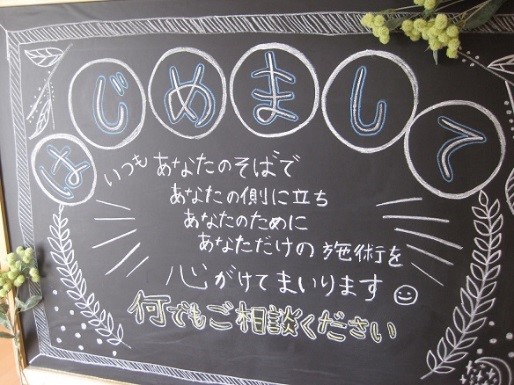 はじめまして
いつもあなたのそばで
あなたの側に立ち
あなたのために
あなただけの施術を
心がけてまいります
何でもご相談ください